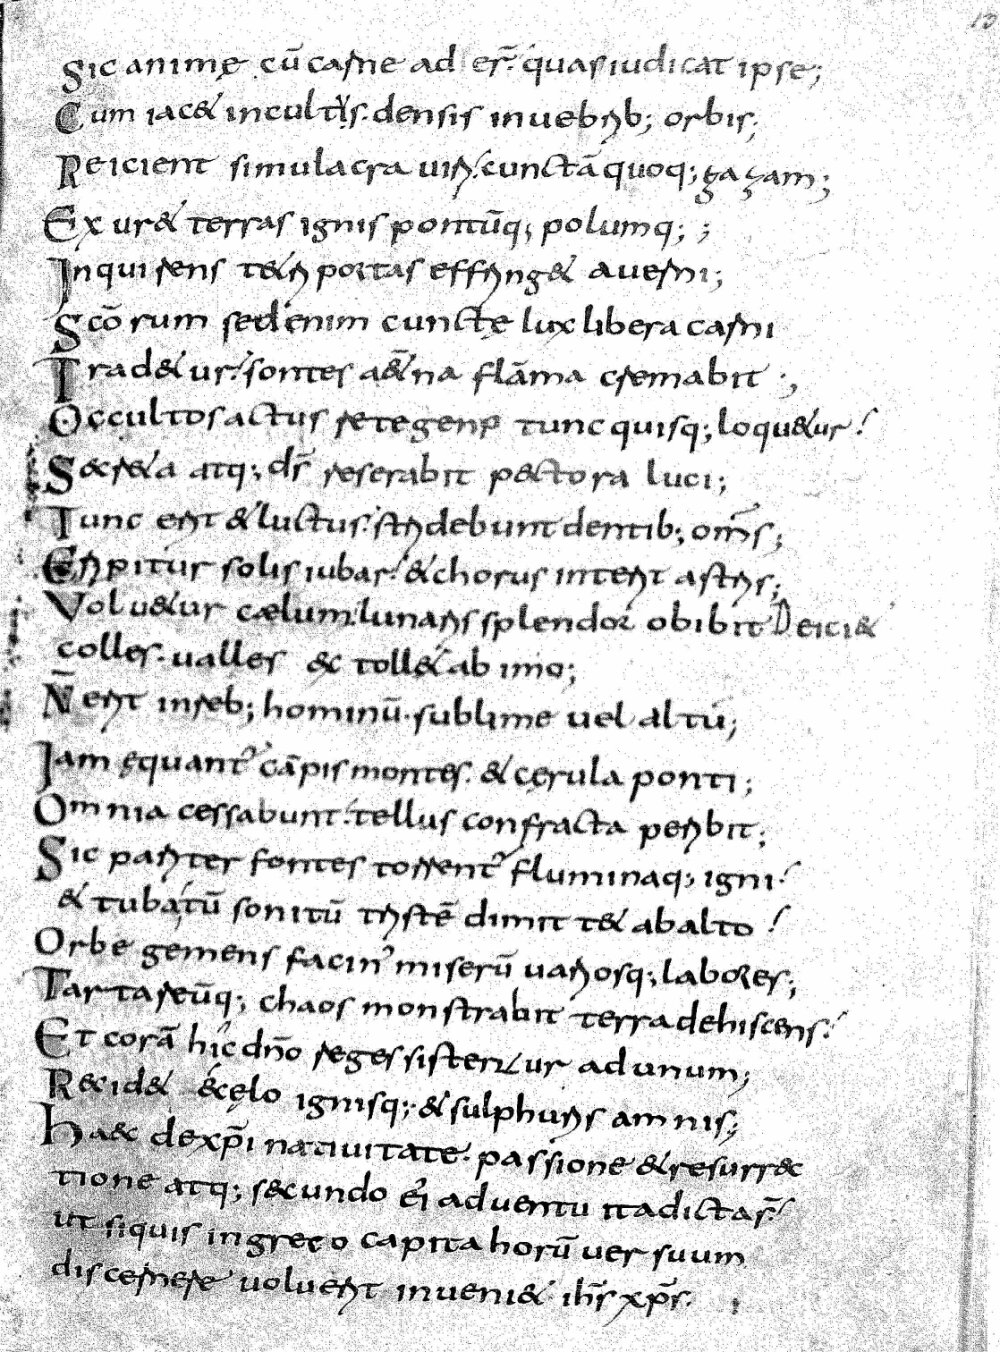 13
Sic animę cū carne ad er̄. quas iudicat ipse;
Cum iac& incultꝰs. densis in uebrib; orbis;
Reicient simulacra uiri. cunctā quoq; gaçam;
Exur& terras ignis pontūq; polumq; ;
Inquirens t&ri portas effring& auerni;
Scōrum sed enim cunctę lux libera carni
Trad&ur. sontes a&̄na flāma cremabit ;
Occultos actus retegens tunc quisq; loqu&ur.
Secr&a atq; ds̄ reserabit pectora luci;
Tunc erit & luctus. stridebunt dentib; om̄s;
Eripitur solis iubar. & chorus interit astris;
Volu&ur cælum. lunaris splendor obibit Deici&
colles. ualles ec toll& ab imo;
N̄ erit in reb; hominū. sublime uel altū;
Iam ęquant᷒ cāpis montes. & cęrula ponti;
Omnia cessabunt. tellus confracta peribit;
Sic pariter fontes torrent᷒ fluminaq; igni.
& tuba tū sonitū tristē dimit t& ab alto
Orbe gemens facin᷒ miserū uariosq; labores;
Tartareūq; chaos monstrabit terra dehiscens.
Et corā hic dn̄o reges sister&ur ad unum;
Recid& ecęlo ignisq; & sulphuris amnis;
Haec de xp̄i natiuitate. passione & resurrec
tione atq; secundo ei᷒ aduentu ita dicta s̄.
ut siquis in greço capita horū uersuum
discernere uoluerit inueni& ih̄s xp̄s.